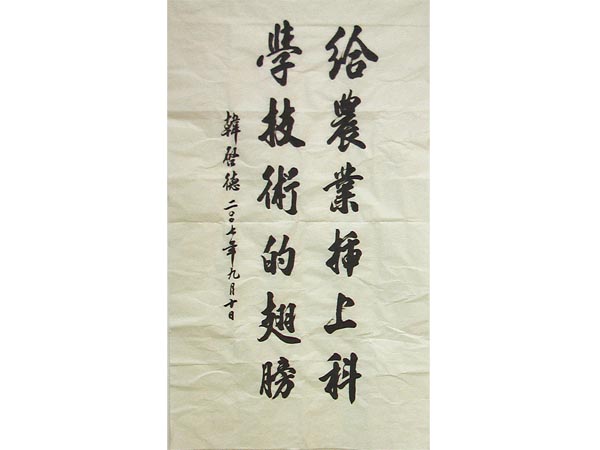 給農業插上科
學技術的翅膀
韓啓德 二〇〇七年九月十日